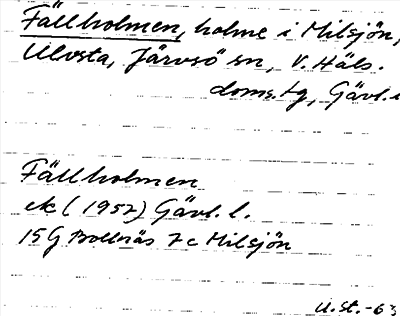 Fällholmen, holme i Milsjön,
Ulvsta, Järvsö sn, V. Häls.
doms.lg, Gävl.l
Fällholmen
ek (1957) Gävl. l.
15G Bollnäs 7c Milsjön
U.St.-63